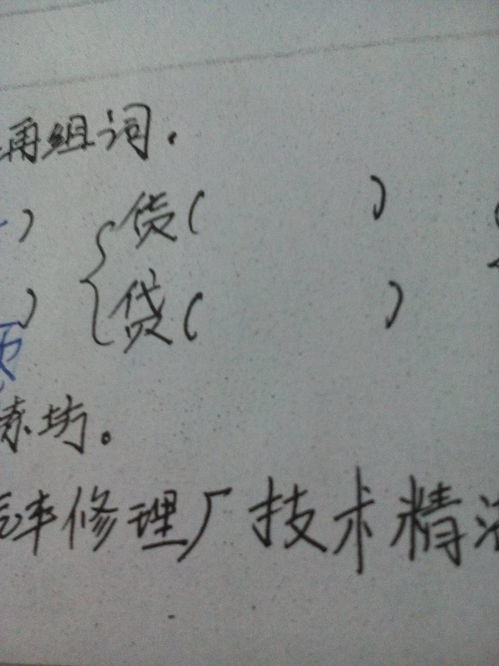 再组词.
) { 货( )
) { 贷( )
练坊。
汽车修理厂技术精